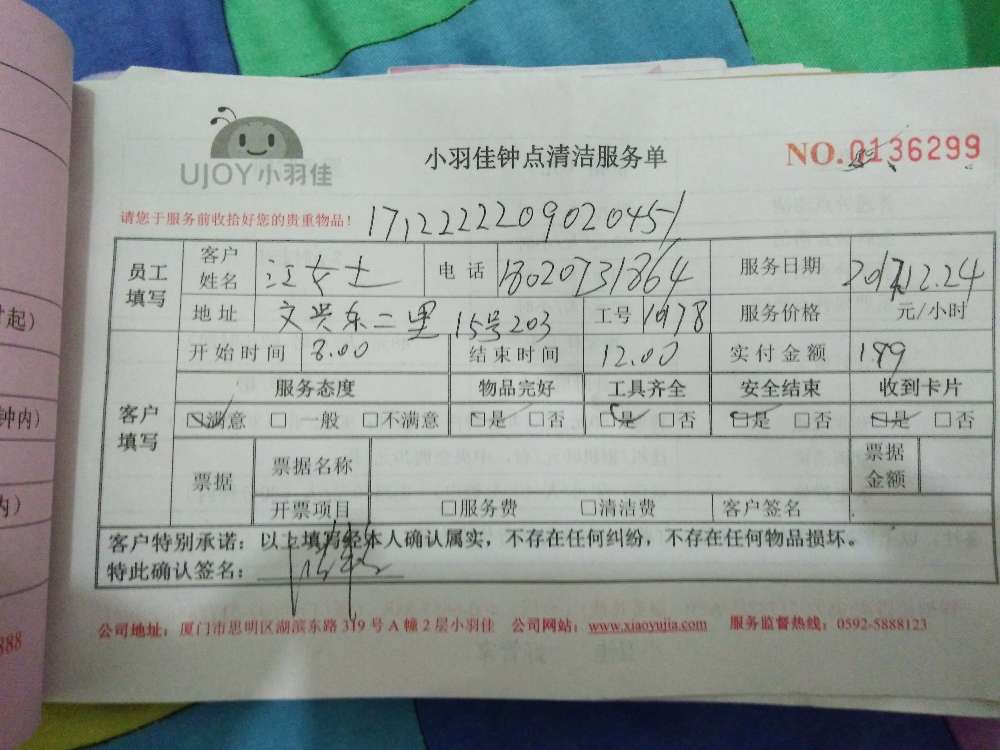 UJOY小羽佳
小羽佳钟点清洁服务单
NO.0136299
请您于服务前收拾好您的贵重物品！ 1712222209020451
员工填写 客户姓名 江女士 电话 18020731864 服务日期 2017.12.24
地址 文兴东二里15号203 工号 1978 服务价格 元/小时
客户填写 开始时间 8.00 结束时间 12.00 实付金额 199
服务态度 物品完好 工具齐全 安全结束 收到卡片
☑满意 □ 一般 □不满意 ☑是 □否 ☑是 □否 ☑是 □否 ☑是 □否
票据 票据名称 票据金额
开票项目 □服务费 □清洁费 客户签名
客户特别承诺：以上填写经本人确认属实，不存在任何纠纷，不存在任何物品损坏。
特此确认签名：
公司地址：厦门市思明区湖滨东路319号A幢2层小羽佳 公司网站：www.xiaoyujia.com 服务监督热线：0592-5888123
时起）
钟内）
内）
888